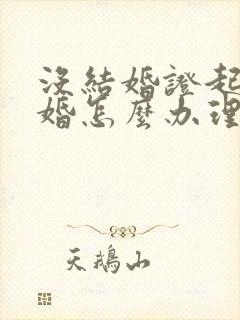 沒結婚證起
婚怎麼办理
天鵝山